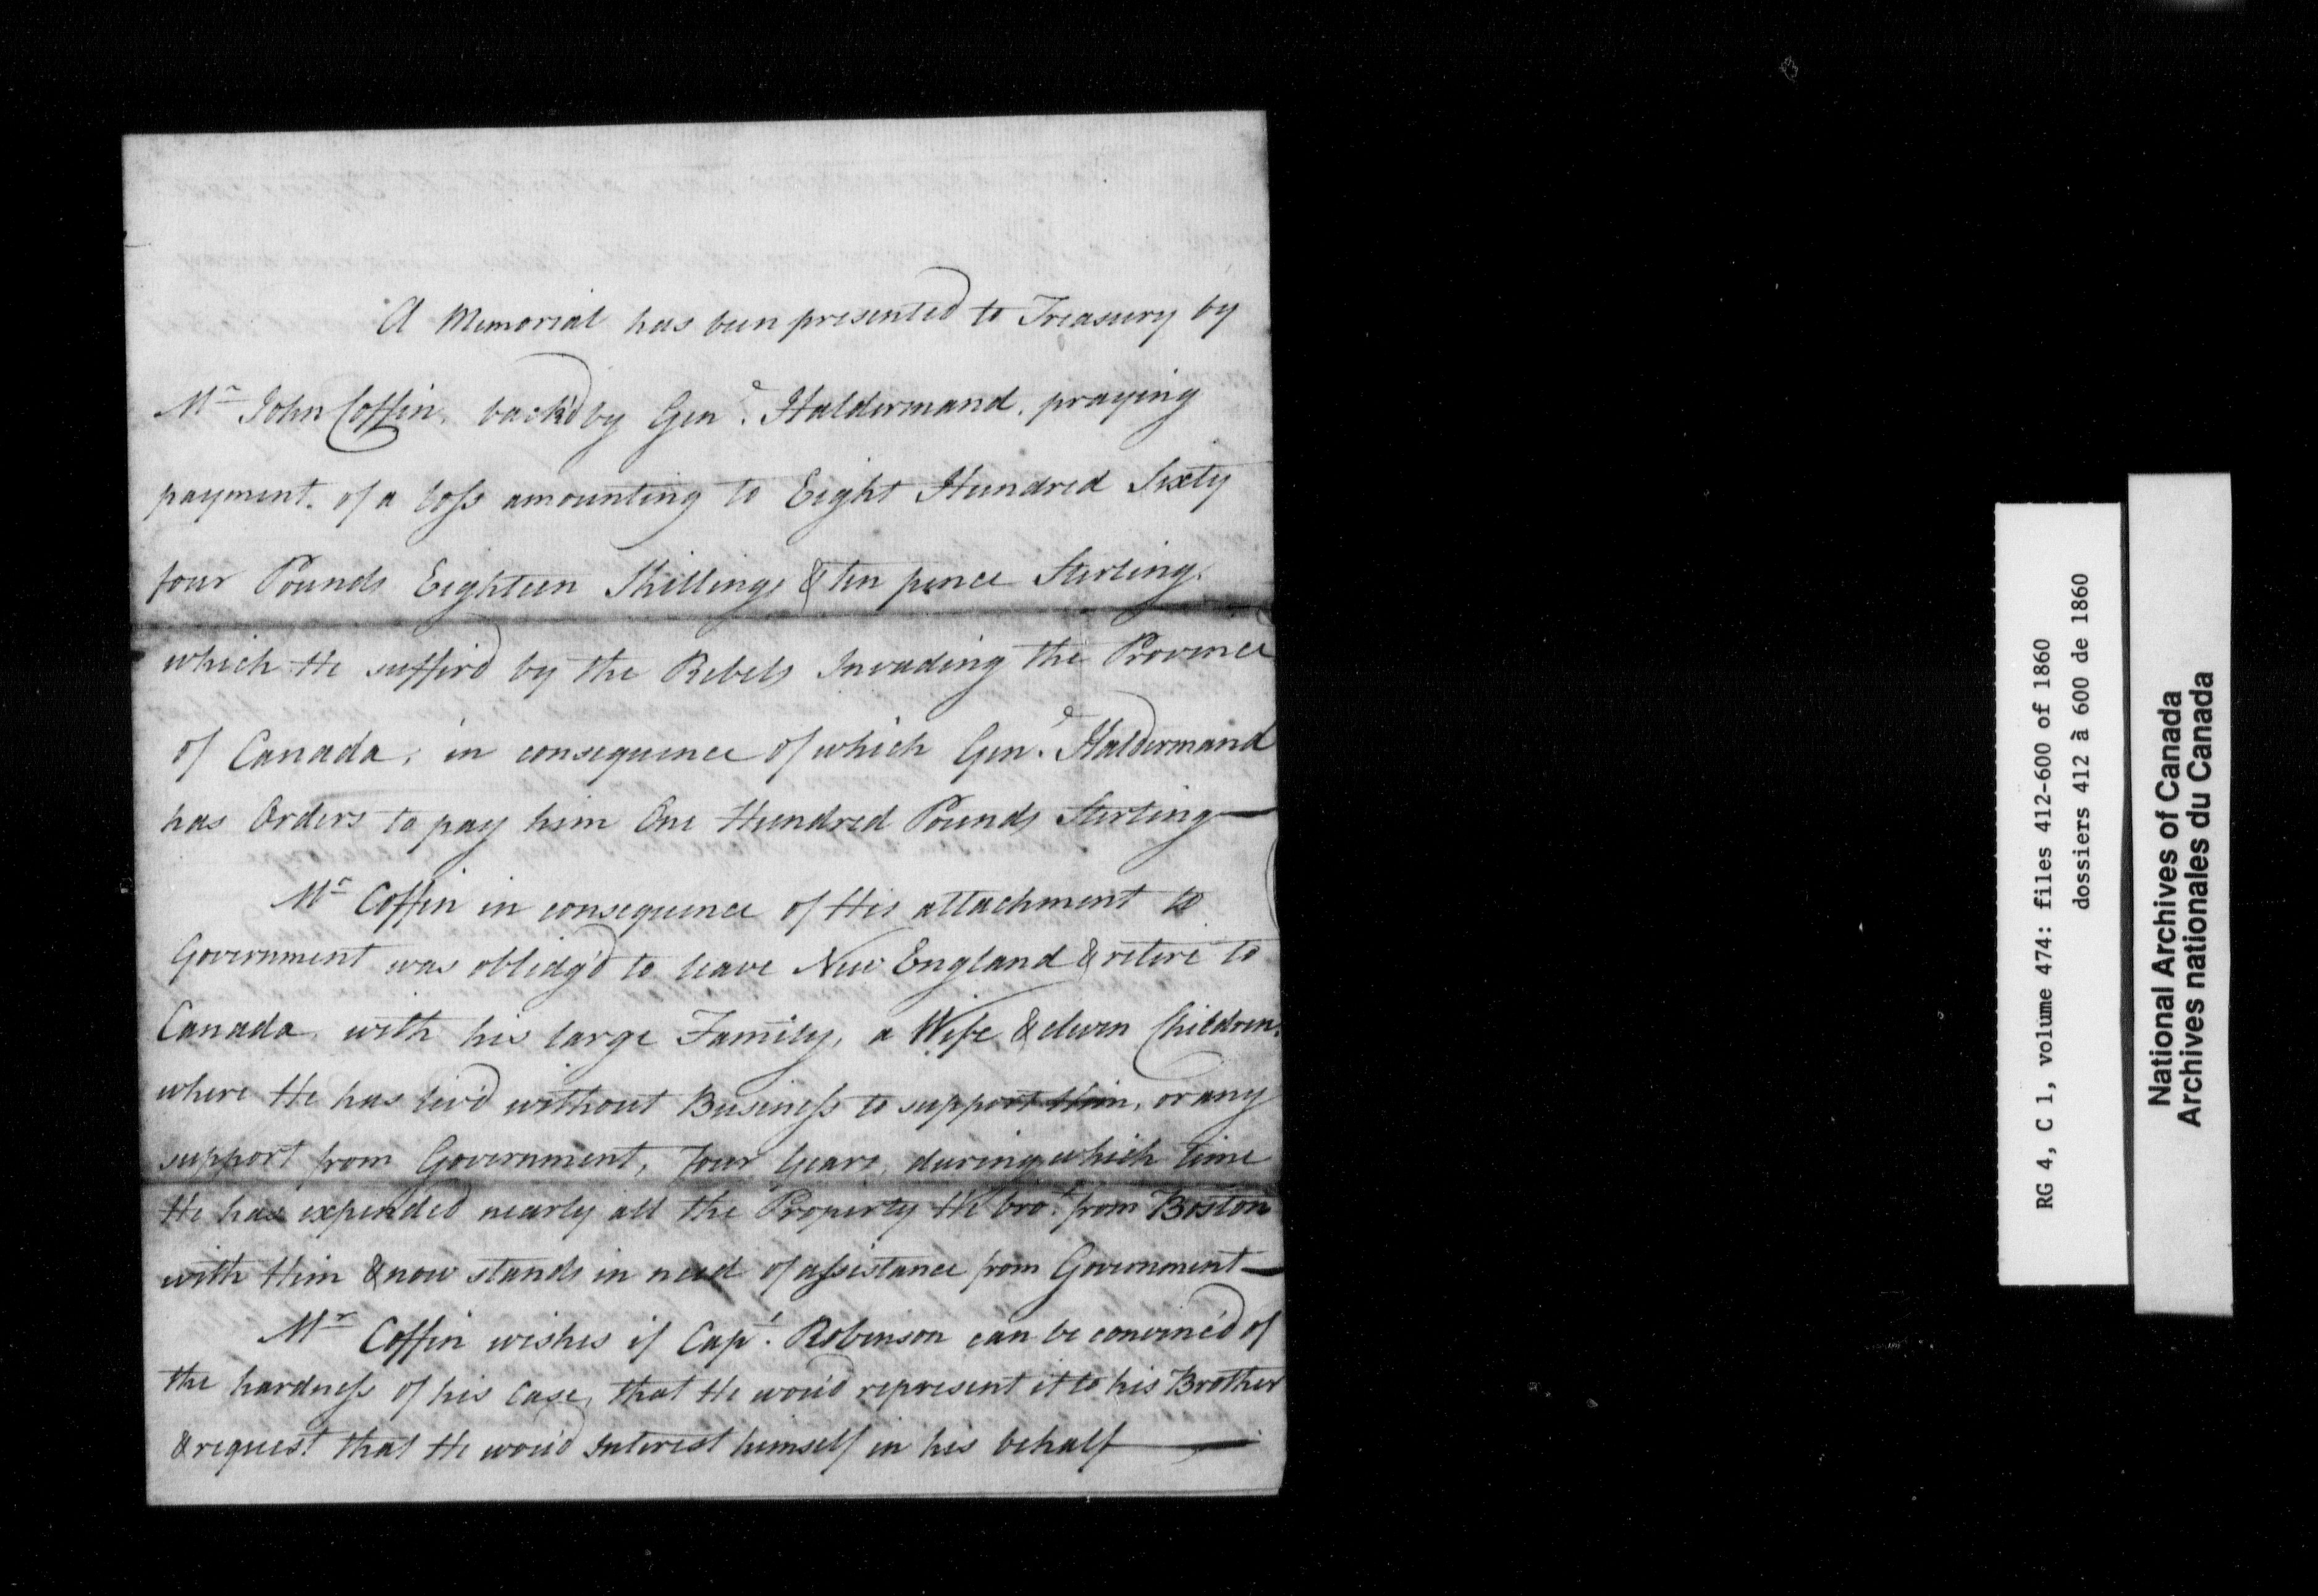 A Memorial has been presented to Treasury by
Mr John Coffin, back'd by Genl. Haldermand, praying
payment. of a loss amounting to Eight Hundred Sixty
four Pounds Eighteen Shillings & ten pence Sterling.
which He suffer'd by the Rebels Invading the Province
of Canada; in consequence of which Genl. Haldermand
has Orders to pay him One Hundred Pounds Sterling—
Mr Coffin in consequence of His attachment to
Government was oblidg'd to leave New England & retire to
Canada, with his large Family, a Wife & eleven Children,
where He has liv'd without Business to support Him, or any
support from Government, four Years, during which time
He has expended nearly all the Property He bro't from Boston
with Him & now stands in need of assistance from Government—
Mr Coffin wishes if Capt. Robinson can be convinc'd of
the hardness of his Case, that He wou'd represent it to his Brother
& request that He wou'd Interest himself in his behalf—
RG 4, C 1, volume 474: files 412-600 of 1860
dossiers 412 à 600 de 1860
National Archives of Canada
Archives nationales du Canada